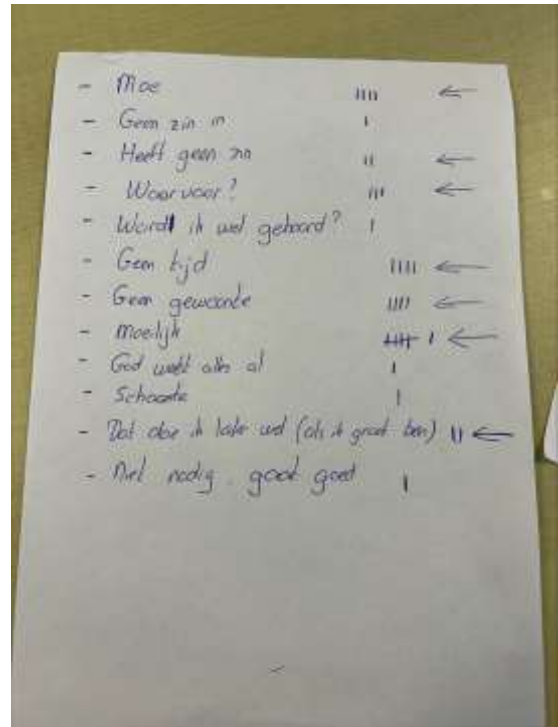 - Moe IIII ←
- Geen zin in I
- Heeft geen zin II ←
- Waarvoor? III ←
- Wordt ik wel gehoord? I
- Geen tijd IIII ←
- Geen gewoonte IIII ←
- Moeilijk IIII I ←
- God weet alles al I
- Schaamte I
- Dat doe ik later wel (als ik groot ben) II ←
- Niet nodig. gaat goed I